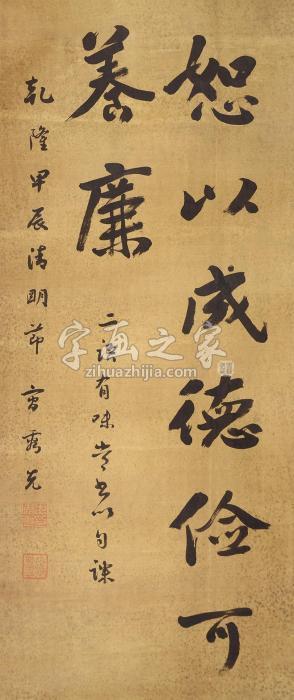 恕以成德俭可
养廉
二语有味常书以自课
乾隆甲辰清明节 曾
字画之家
zihuazhijia.com